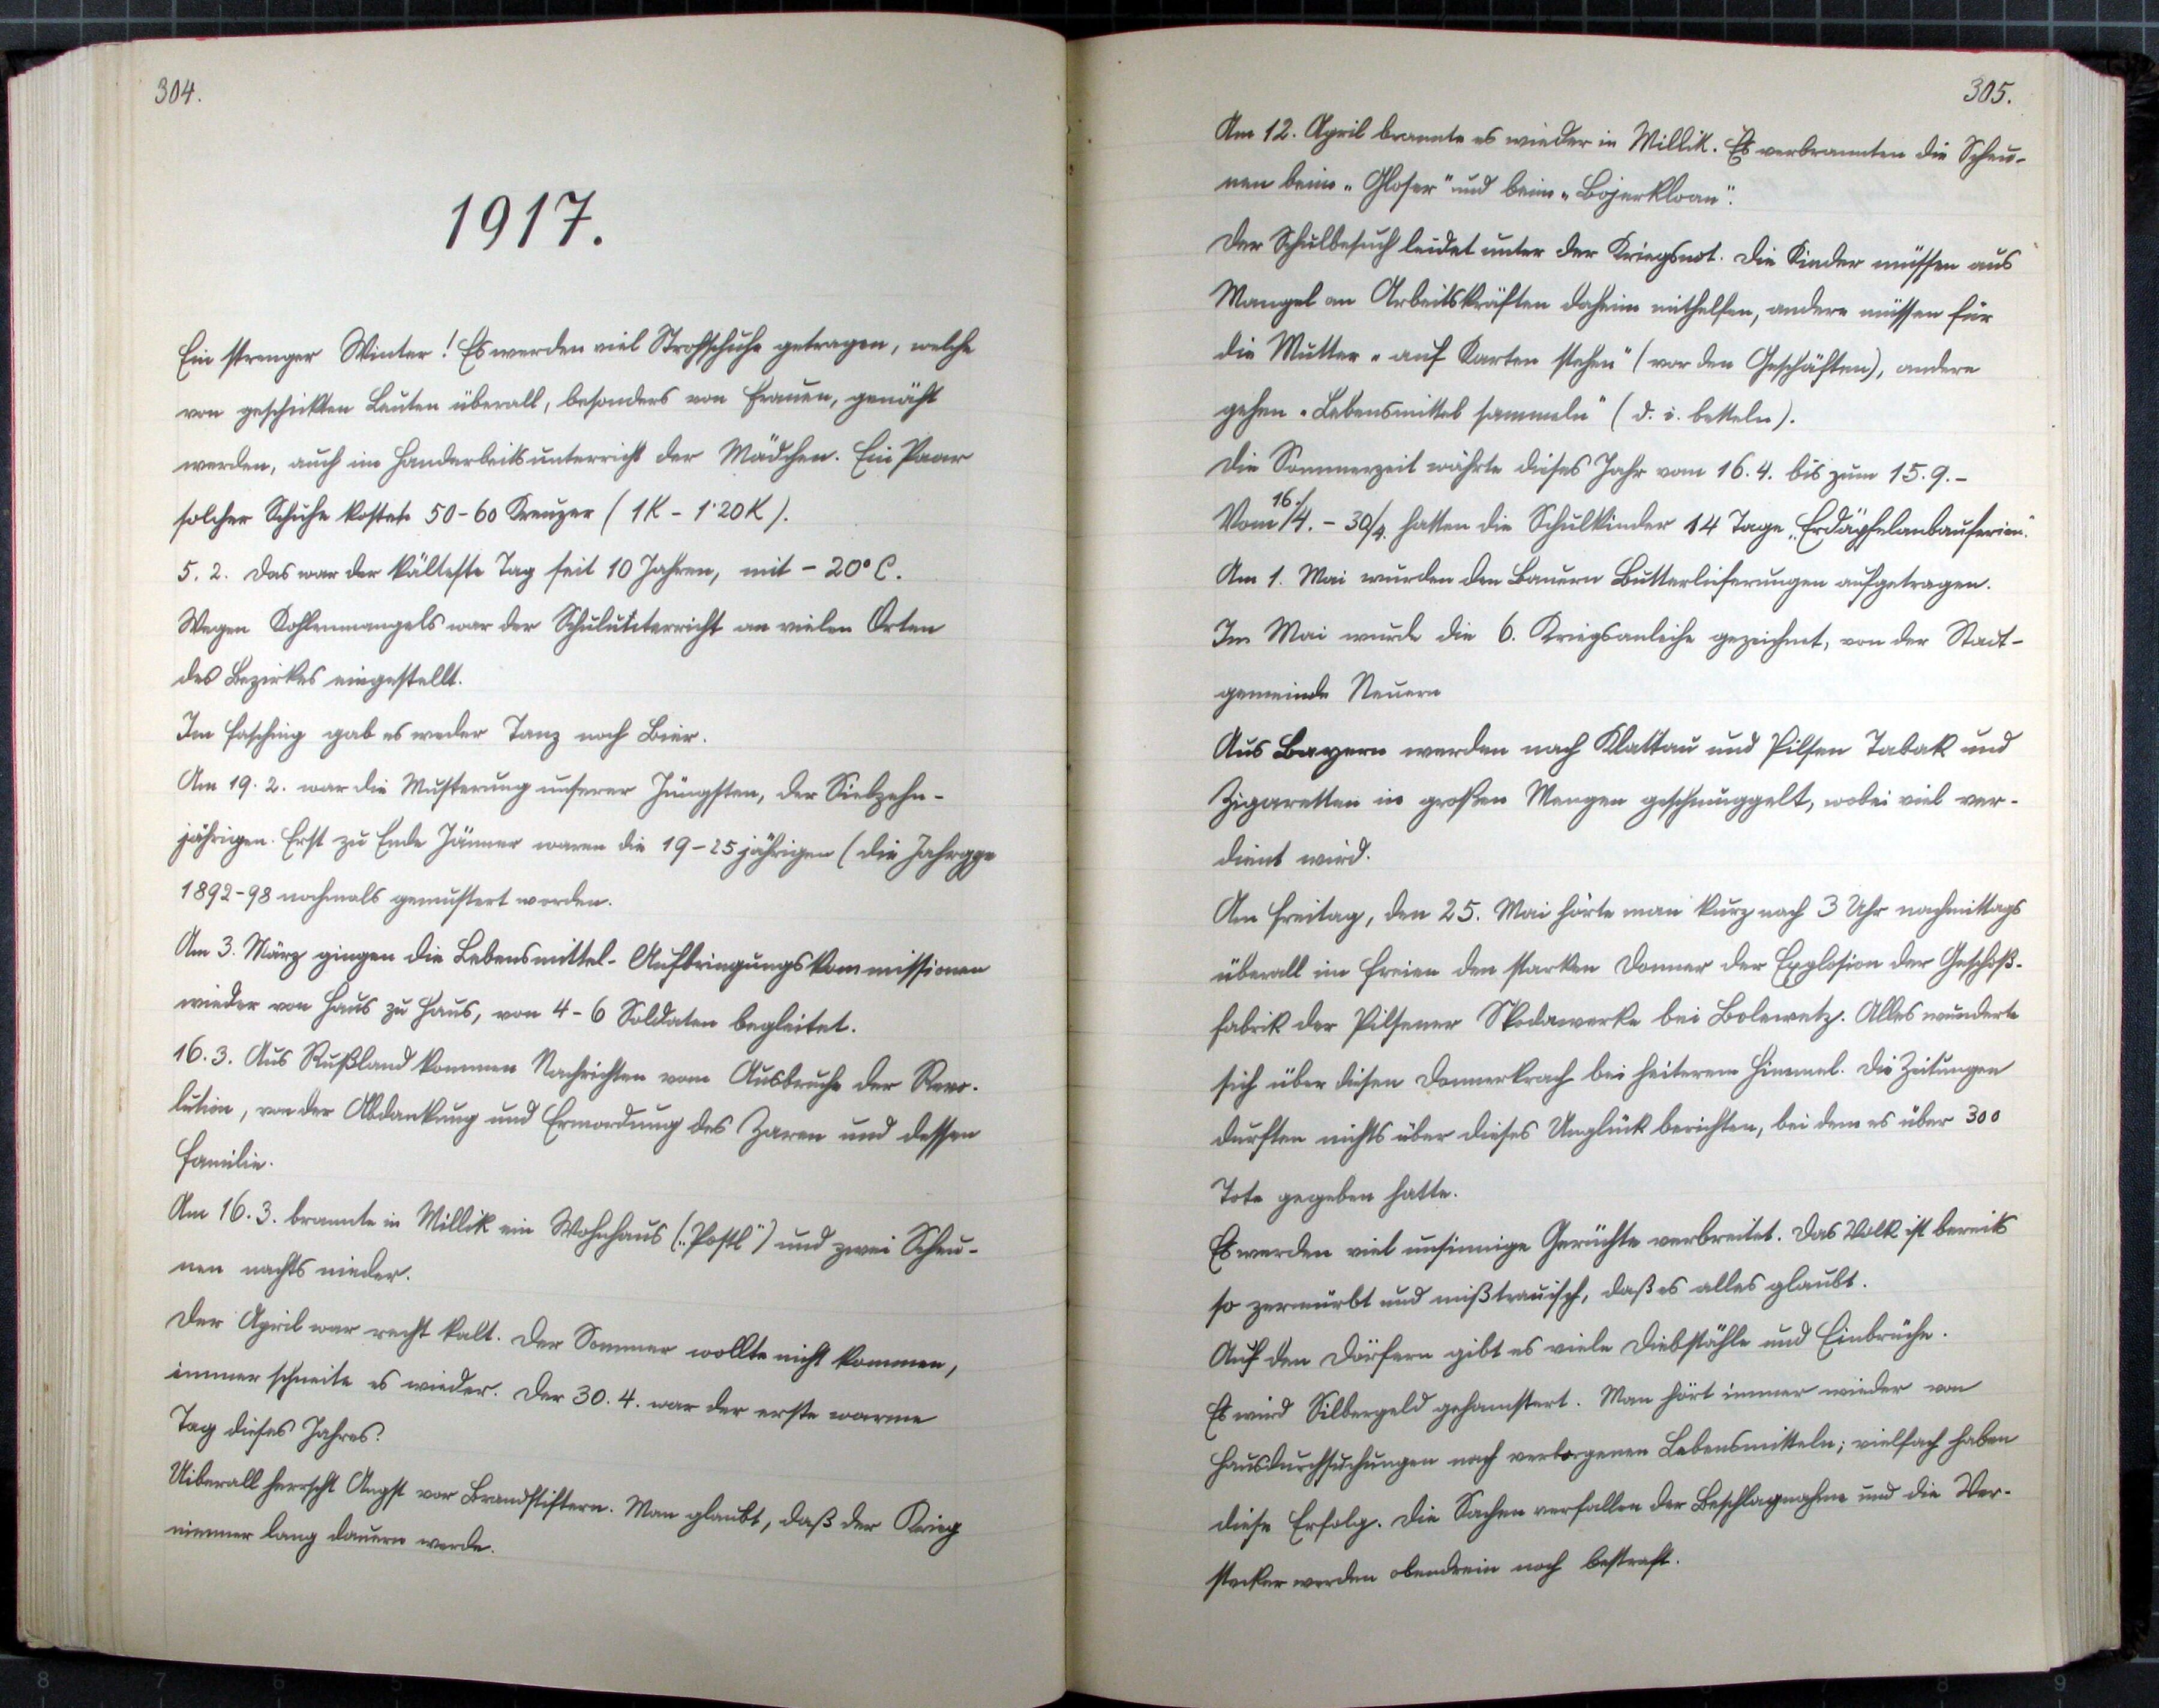 304.
1917.
Ein strenger Winter! Es werden viel Strohschuhe getragen, welche
von geschickten Leuten überall, besonders von Frauen, genäht
werden, auch im Handarbeitsunterricht der Mädchen. Ein Paar
solcher Schuhe kostete 50-60 Kreuzer (1K - 1'20K).
5. 2. Das war der kälteste Tag seit 10 Jahren, mit - 20° C.
Wegen Kohlenmangels war der Schulunterricht an vielen Orten
des Bezirkes eingestellt.
Im Fasching gab es weder Tanz noch Bier.
Am 19. 2. war die Musterung unserer Jüngsten, der Siebzehn-
jährigen. Erst zu Ende Jänner waren die 19-25 jährigen (die Jahrgge
1892-98 nochmals gemustert worden.
Am 3. März gingen die Lebensmittel-Aufbringungskommissionen
wieder von Haus zu Haus, von 4-6 Soldaten begleitet.
16. 3. Aus Rußland kommen Nachrichten vom Ausbruche der Revo-
lution, von der Abdankung und Ermordung des Zaren und dessen
Familie.
Am 16. 3. brannte in Millik ein Wohnhaus („Postl") und zwei Scheu-
nen nachts nieder.
Der April war recht kalt. Der Sommer wollte nicht kommen,
immer schneite es wieder. Der 30. 4. war der erste warme
Tag dieses Jahres.
Uiberall herrscht Angst vor Brandstiftern. Man glaubt, daß der Krieg
nimmer lang dauern werde.
305.
Am 12. April brannte es wieder in Millik. Es verbrannten die Scheu-
nen beim „Gloser" und beim „Bojerkloan".
Der Schulbesuch leidet unter der Kriegsnot. Die Kinder müssen aus
Mangel an Arbeitskräften daheim mithelfen, andere müssen für
die Mutter „auf Karten stehen" (vor den Geschäften), andere
gehen „Lebensmittel sammeln" (d. i. betteln).
Die Sommerzeit währte dieses Jahr vom 16. 4. bis zum 15. 9. -
Vom 16./4. - 30/4. hatten die Schulkinder 14 Tage „Erdäpfelanbauferien."
Am 1. Mai wurden den Bauern Butterlieferungen aufgetragen.
Im Mai wurde die 6. Kriegsanleihe gezeichnet, von der Stadt-
gemeinde Neuern
Aus Bayern werden nach Klattau und Pilsen Tabak und
Zigaretten in großen Mengen geschmuggelt, wobei viel ver-
dient wird.
Am Freitag, den 25. Mai hörte man kurz nach 3 Uhr nachmittags
überall im Freien den starken Donner der Explosion der Geschoß-
fabrik der Pilsener Skodawerke bei Bolewetz. Alles wunderte
sich über diesen Donnerkrach bei heiterem Himmel. Die Zeitungen
durften nichts über dieses Unglück berichten, bei dem es über 300
Tote gegeben hatte.
Es werden viel unsinnige Gerüchte verbreitet. Das Volk ist bereits
so zermürbt und mißtrauisch, daß es alles glaubt.
Auf den Dörfern gibt es viele Diebstähle und Einbrüche.
Es wird Silbergeld gehamstert. Man hört immer wieder von
Hausdurchsuchungen nach verborgenen Lebensmitteln; vielfach haben
diese Erfolg. Die Sachen verfallen der Beschlagnahme und die Ver-
stecker werden obendrein noch bestraft.
8 7 6 5 7 8 9